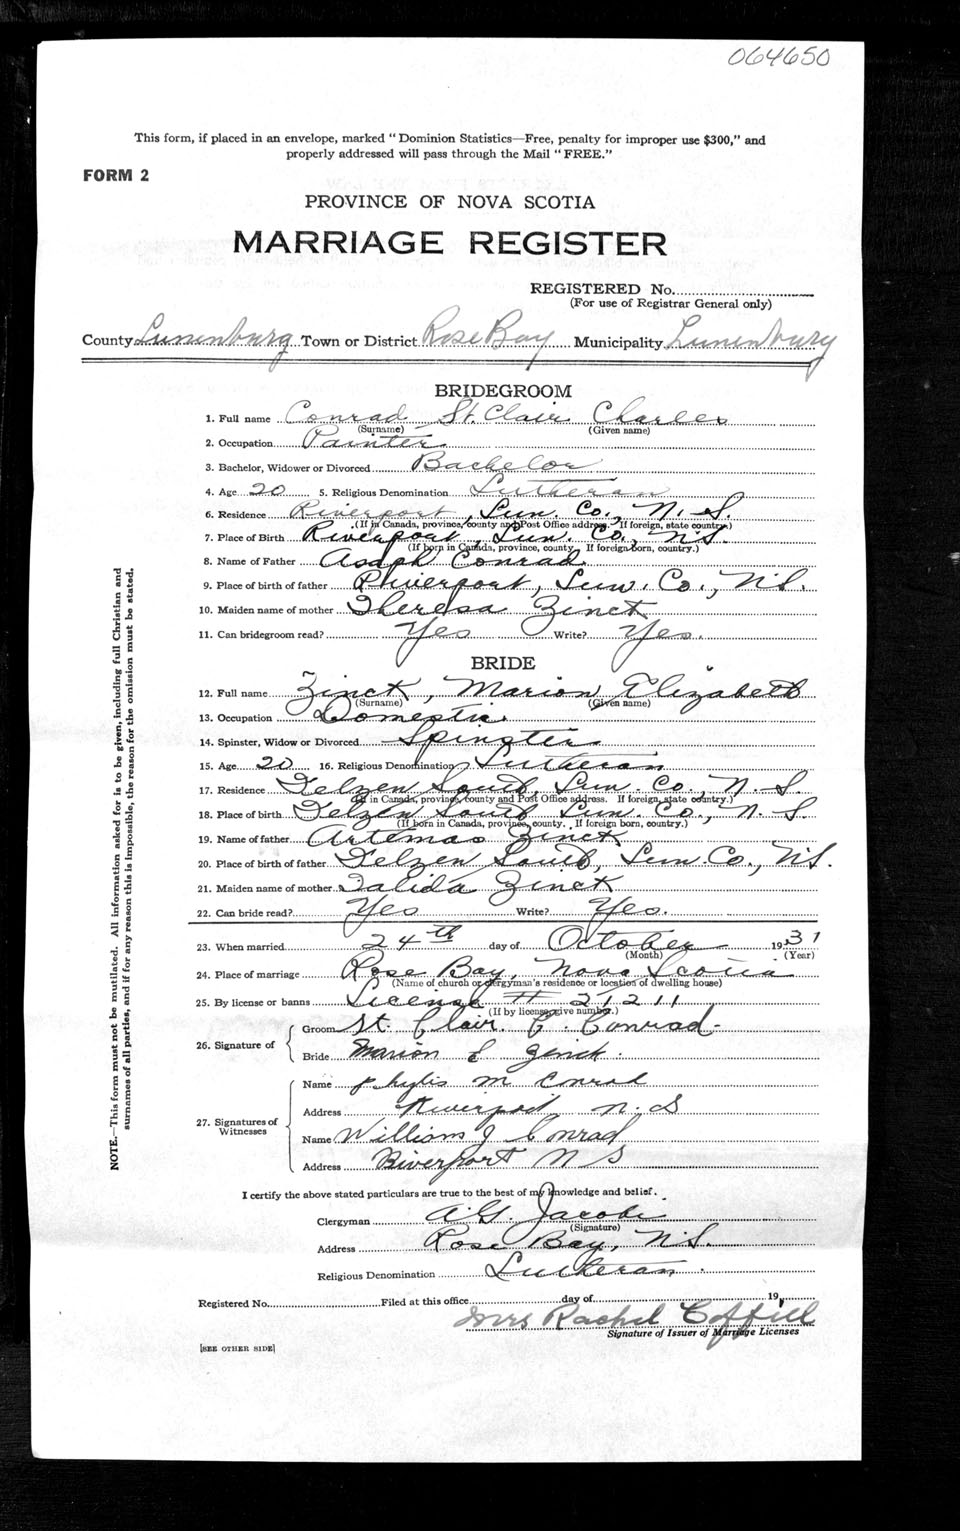 064650
This form, if placed in an envelope, marked "Dominion Statistics—Free, penalty for improper use $300," and
properly addressed will pass through the Mail "FREE."
FORM 2
PROVINCE OF NOVA SCOTIA
MARRIAGE REGISTER
REGISTERED No.
(For use of Registrar General only)
County Lunenburg Town or District Rose Bay Municipality Lunenburg
BRIDEGROOM
1. Full name Conrad St. Clair Charles
(Surname) (Given name)
2. Occupation Painter
3. Bachelor, Widower or Divorced Bachelor
4. Age 20 5. Religious Denomination Lutheran
6. Residence Riverport, Lun. Co., N.S.
(If in Canada, province, county and Post Office address. If foreign, state country.)
7. Place of Birth Riverport, Lun. Co., N.S.
(If born in Canada, province, county. If foreign born, country.)
8. Name of Father Asaph Conrad
9. Place of birth of father Riverport, Lun. Co., N.S.
10. Maiden name of mother Theresa Zinck
11. Can bridegroom read? Yes Write? Yes.
BRIDE
12. Full name Zinck, Marion Elizabeth
(Surname) (Given name)
13. Occupation Domestic
14. Spinster, Widow or Divorced Spinster
15. Age 20 16. Religious Denomination Lutheran
17. Residence Felzen South, Lun. Co., N.S.
(If in Canada, province, county and Post Office address. If foreign, state country.)
18. Place of birth Felzen South Lun. Co., N.S.
(If born in Canada, province, county. If foreign born, country.)
19. Name of father Artemas Zinck
20. Place of birth of father Felzen South, Lun. Co., N.S.
21. Maiden name of mother Zinck
22. Can bride read? Yes Write? Yes.
23. When married 24th day of October 1931
(Month) (Year)
24. Place of marriage Rose Bay, Nova Scotia
(Name of church or clergyman's residence or location of dwelling house)
25. By license or banns License # 21211
(If by license give number.)
26. Signature of
Groom St. Clair C. Conrad
Bride Marion E Zinck
27. Signatures of Witnesses
Name Phylis M Conrad
Address Riverport, N.S
Name William J Conrad
Address Riverport N S
I certify the above stated particulars are true to the best of my knowledge and belief.
Clergyman A. G. Jacobi
(Signature)
Address Rose Bay, N.S.
Religious Denomination Lutheran.
Registered No. Filed at this office day of 19
Mrs Rachel Coffill
Signature of Issuer of Marriage Licenses
[SEE OTHER SIDE]
NOTE.—This form must not be mutilated. All information asked for is to be given, including full Christian and
surnames of all parties, and if for any reason this is impossible, the reason for the omission must be stated.